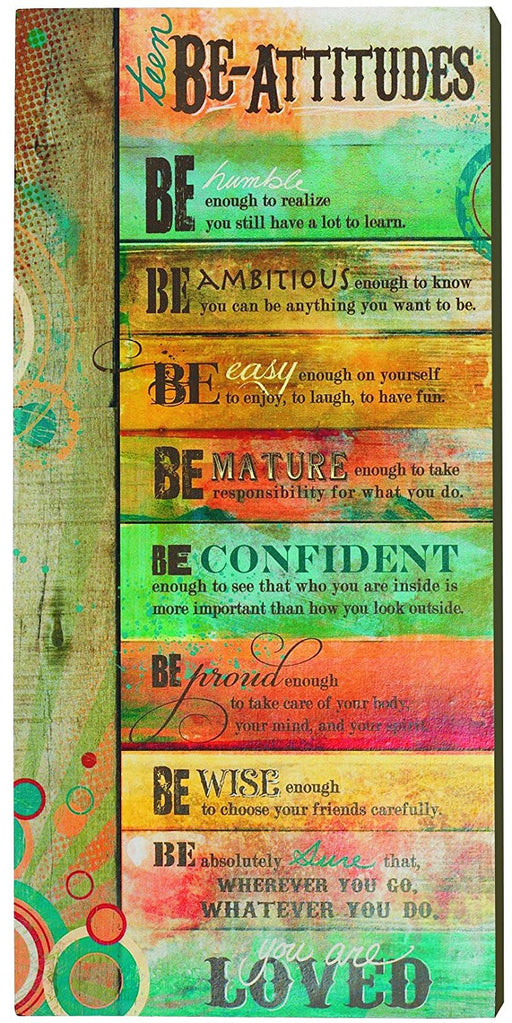 teen BE-ATTITUDES
BE humble
enough to realize
you still have a lot to learn.
BE AMBITIOUS enough to know
you can be anything you want to be.
BE easy enough on yourself
to enjoy, to laugh, to have fun.
BE MATURE enough to take
responsibility for what you do.
BE CONFIDENT
enough to see that who you are inside is
more important than how you look outside.
BE proud enough
to take care of your body,
your mind, and your spirit.
BE WISE enough
to choose your friends carefully.
BE absolutely sure that,
WHEREVER YOU GO,
WHATEVER YOU DO,
you are
LOVED